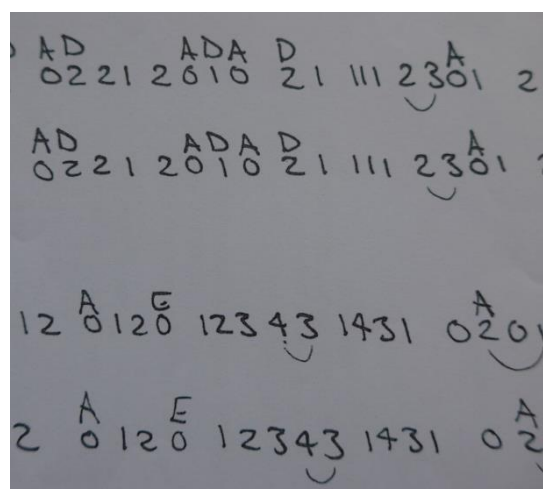 A D A D A D A
0221 2010 21 111 2301 2
A D A D A D A
0221 2010 21 111 2301
A E A
12 0120 12343 1431 0201
A E A
2 0120 12343 1431 02